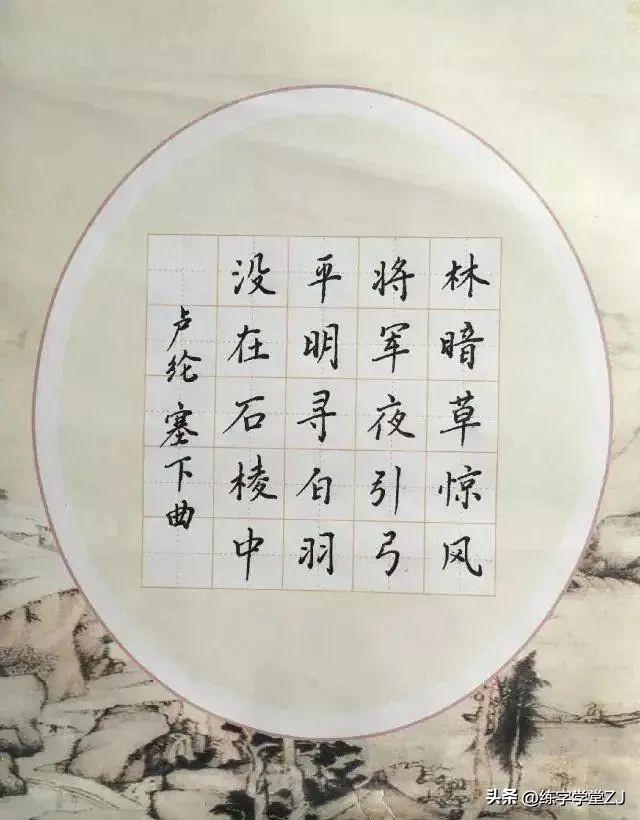 林暗草惊风
将军夜引弓
平明寻白羽
没在石棱中
卢纶塞下曲
头条@练字学堂ZJ